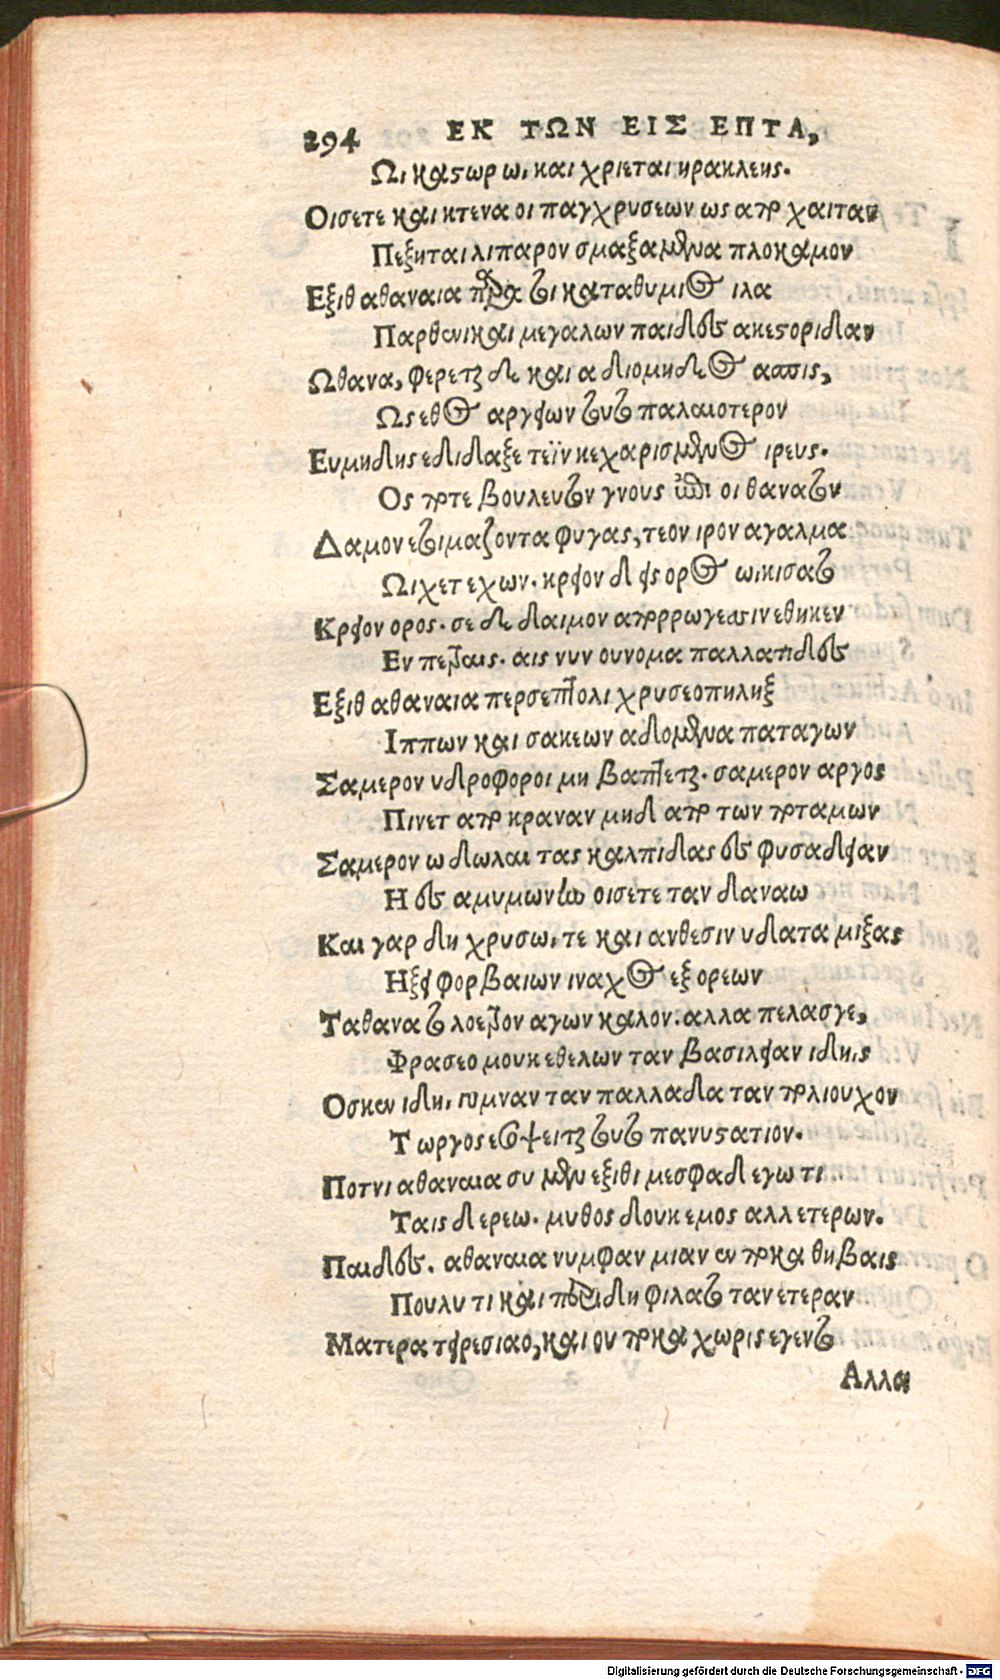 294 ΕΚ ΤΩΝ ΕΙΣ ΕΠΤΑ,
Ωι καςωρ ωι και χριεται ηρακλεης.
Οισετε και κτενα οι παγχρυσεων ως απο χαιταν
Πεξηται λιπαρον σμαξαμενα πλοκαμον
Εξιθ αθαναια παρα τοι καταθυμιος ιλα
Παρθενικαι μεγαλων παιδες ακεςοριδαν
Ωθανα, φερεται δε και α διομηδεος ασπις,
Ως εθος αργειων τουτο παλαιοτερον
Ευμηδης εδιδαξε τεϊν κεχαρισμενος ιρευς.
Ος ποτε βουλευτον γνους επι οι θανατον
Δαμον ετοιμαζοντα φυγας, τεον ιρον αγαλμα
Ωιχετ εχων. κρειον δ εις ορος ωικισατο
Κρειον ορος. σε δε δαιμον απορρωγεσιν εθηκεν
Εν πετραις. αις νυν ουνομα παλλατιδες
Εξιθ αθαναια περσεπτολι χρυσεοπηληξ
Ιππων και σακεων αδομενα παταγων
Σαμερον υδροφοροι μη βαπτεται. σαμερον αργος
Πινετ απο κραναν μηδ απο των ποταμων
Σαμερον ω δωλαι τας καλπιδας ες φυσαδειαν
Η ες αμυμωνω οισετε ταν δαναω
Και γαρ δη χρυσωι τε και ανθεσιν υδατα μιξας
Ηξει φορβαιων ιναχος εξ ορεων
Ταθανα το λοετρον αγων καλον. αλλα πελασγε,
Φρασεο μουκ εθελων ταν βασιλειαν ιδηις
Οσκεν ιδηι γυμναν ταν παλλαδα ταν πολιουχον
Τωργος εσοψειται τουτο πανυςατιον.
Ποτνι αθαναια συ μεν εξιθι μεσφα δ εγω τι
Ταις δ ερεω. μυθος δουκ εμος αλλ ετερων.
Παιδες. αθαναια νυμφαν μιαν εν ποκα θηβαις
Πουλυ τι και περι δη φιλατο ταν ετεραν
Ματερα τειρεσιαο, και ου ποκα χωρις εγεντο
Αλλα
Digitalisierung gefördert durch die Deutsche Forschungsgemeinschaft - DFG